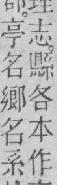 理志縣各本作
亭名鄉名系